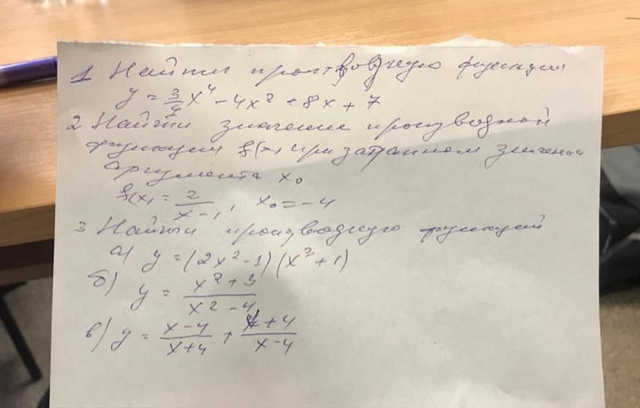 1 Найти производную функции
y = 3/4 x⁴ - 4x² + 8x + 7
2 Найти значение производной
функции f(x) при заданном значении
аргумента x₀
f(x) = 2/(x-1), x₀ = -4
3 Найти производную функций
а) y = (2x²-1)(x³+1)
б) y = (x²+3)/(x²-4)
в) y = (x-4)/(x+4) + (x+4)/(x-4)